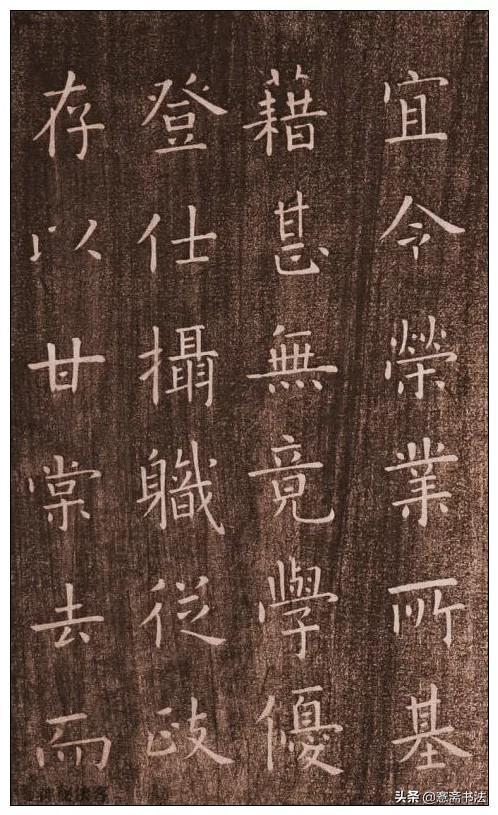 宜令榮業所基
藉甚無竟學優
登仕攝職從政
存以甘棠去而
头条 @意斋书法